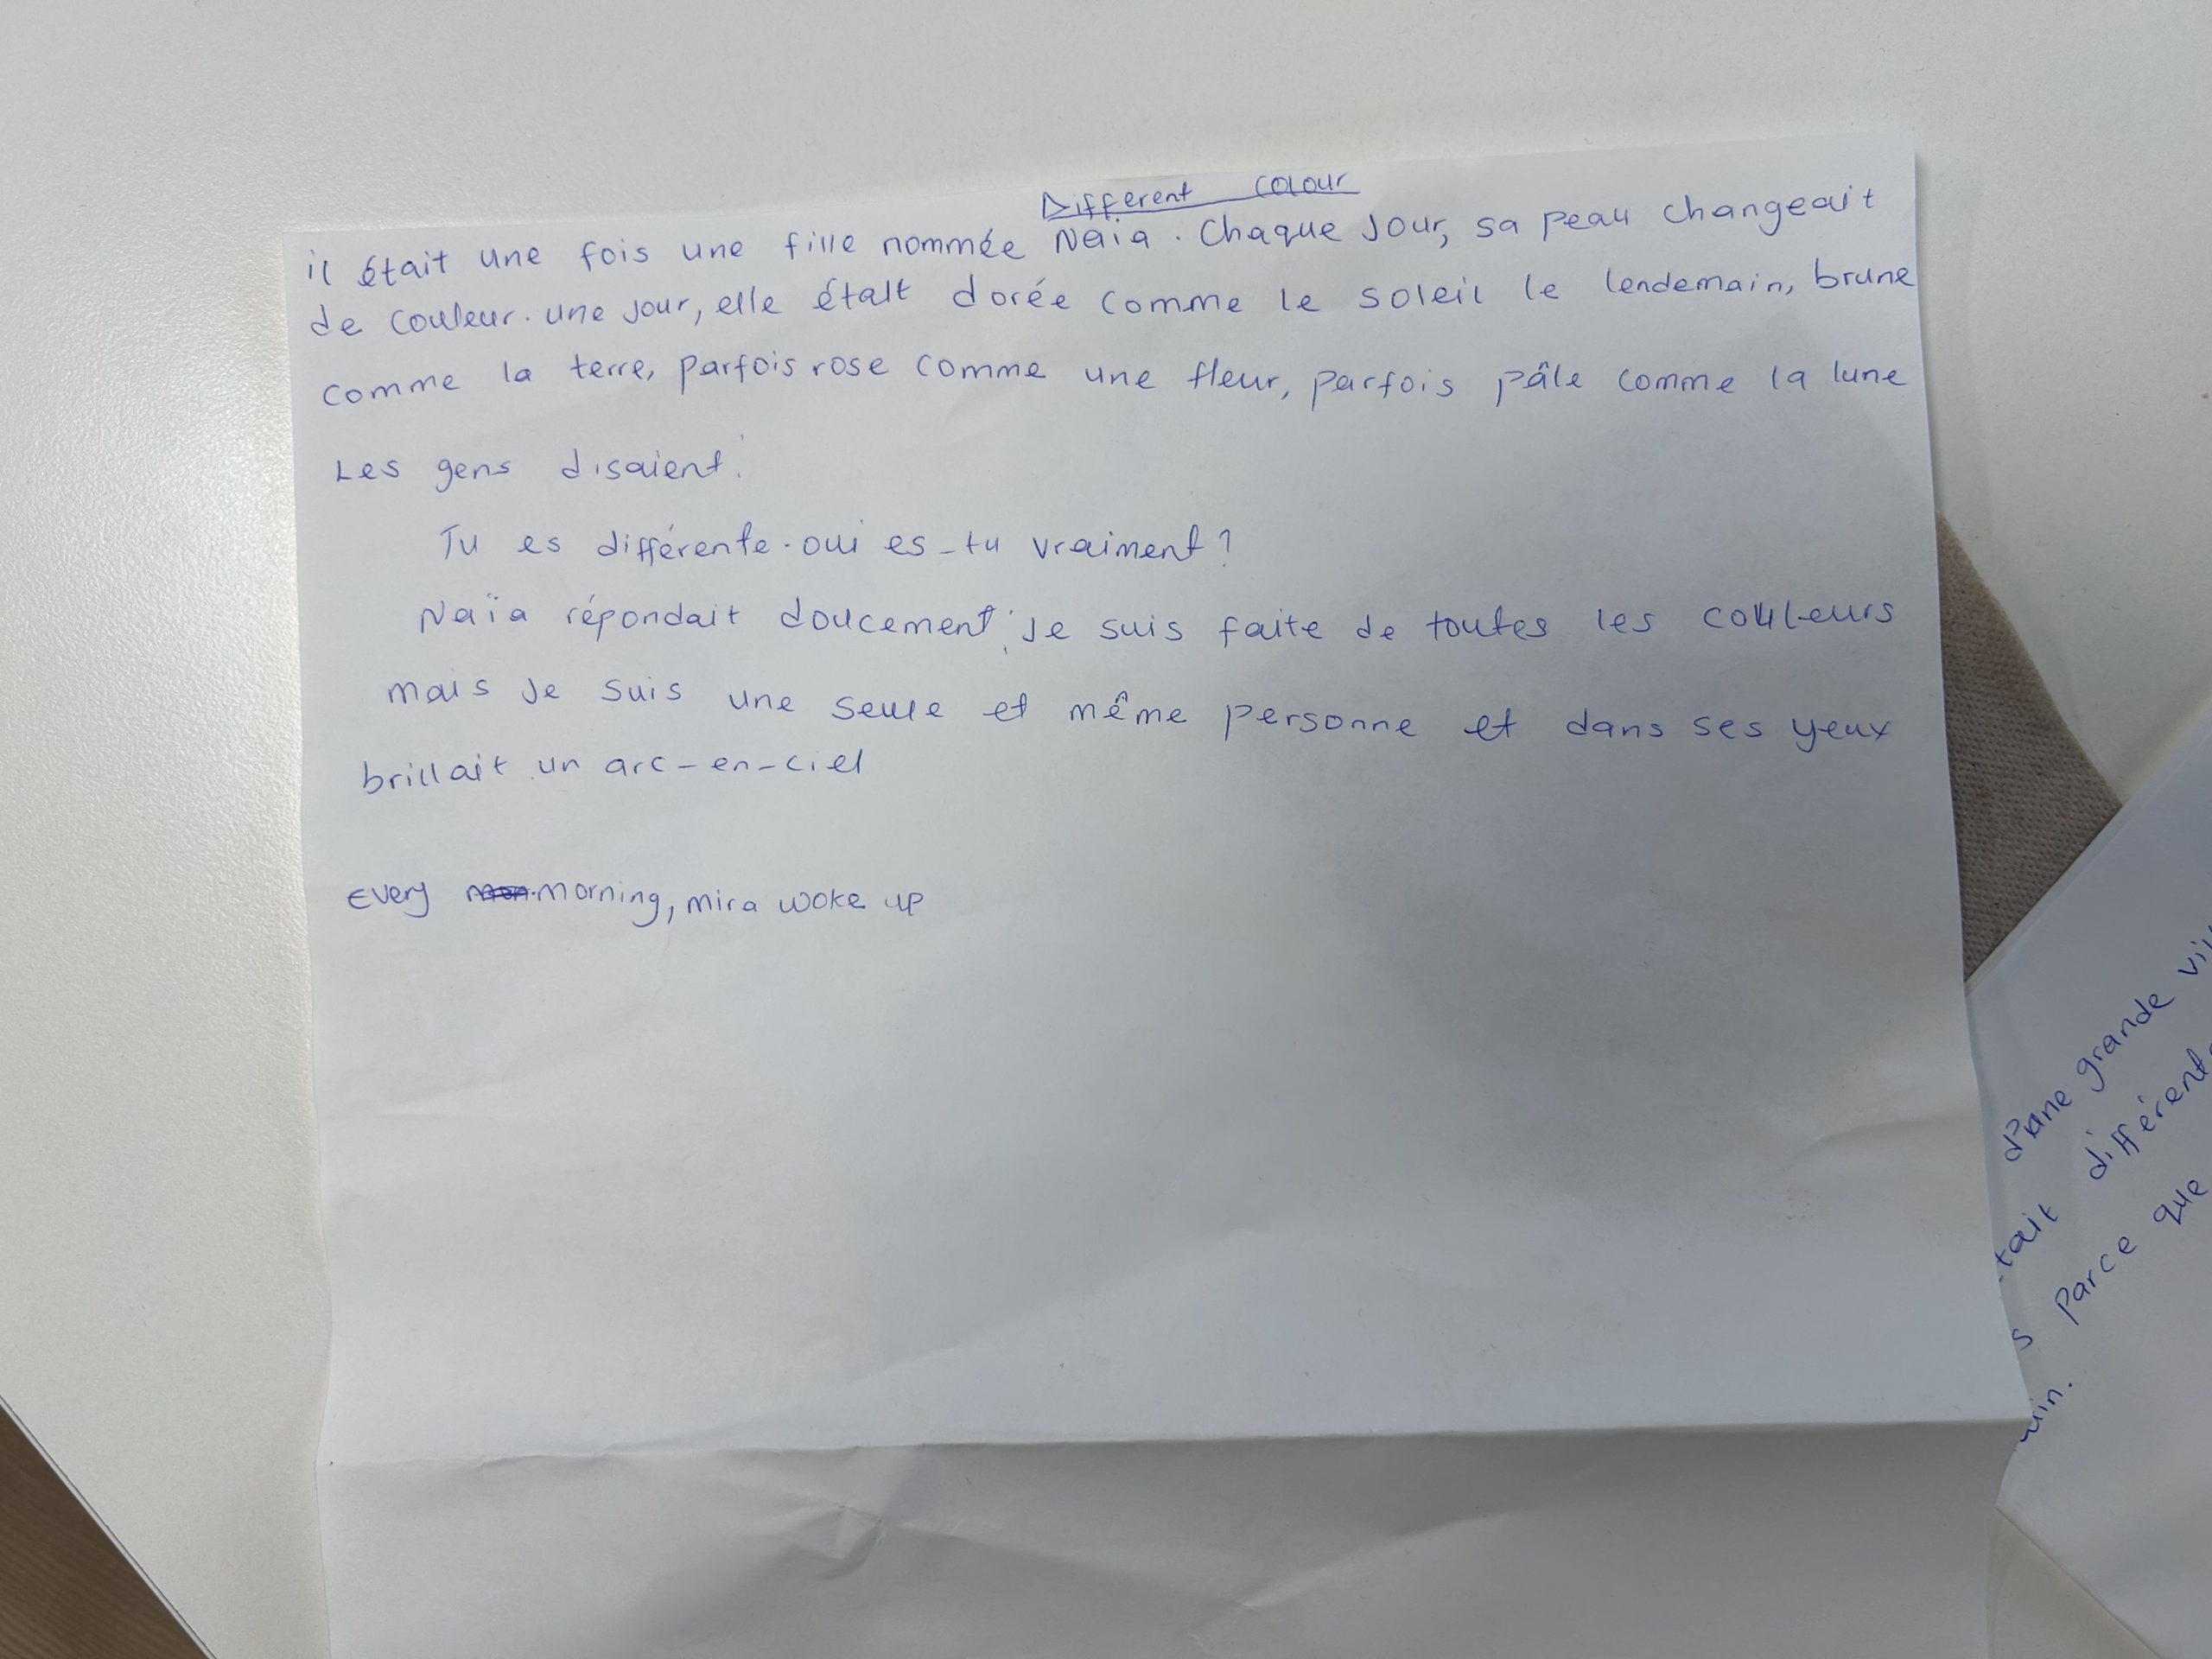 Different colour
il était une fois une fille nommée Naia. Chaque Jour, sa peau changeait
de couleur. une jour, elle était dorée comme le soleil le lendemain, brune
comme la terre, parfois rose comme une fleur, parfois pâle comme la lune
Les gens disaient:
Tu es différente. oui es-tu vraiment?
Naïa répondait doucement: Je suis faite de toutes les couleurs
mais Je suis une seule et même personne et dans ses yeux
brillait un arc-en-ciel
Every morning, mira woke up
d'une grande
tait différent
s Parce que